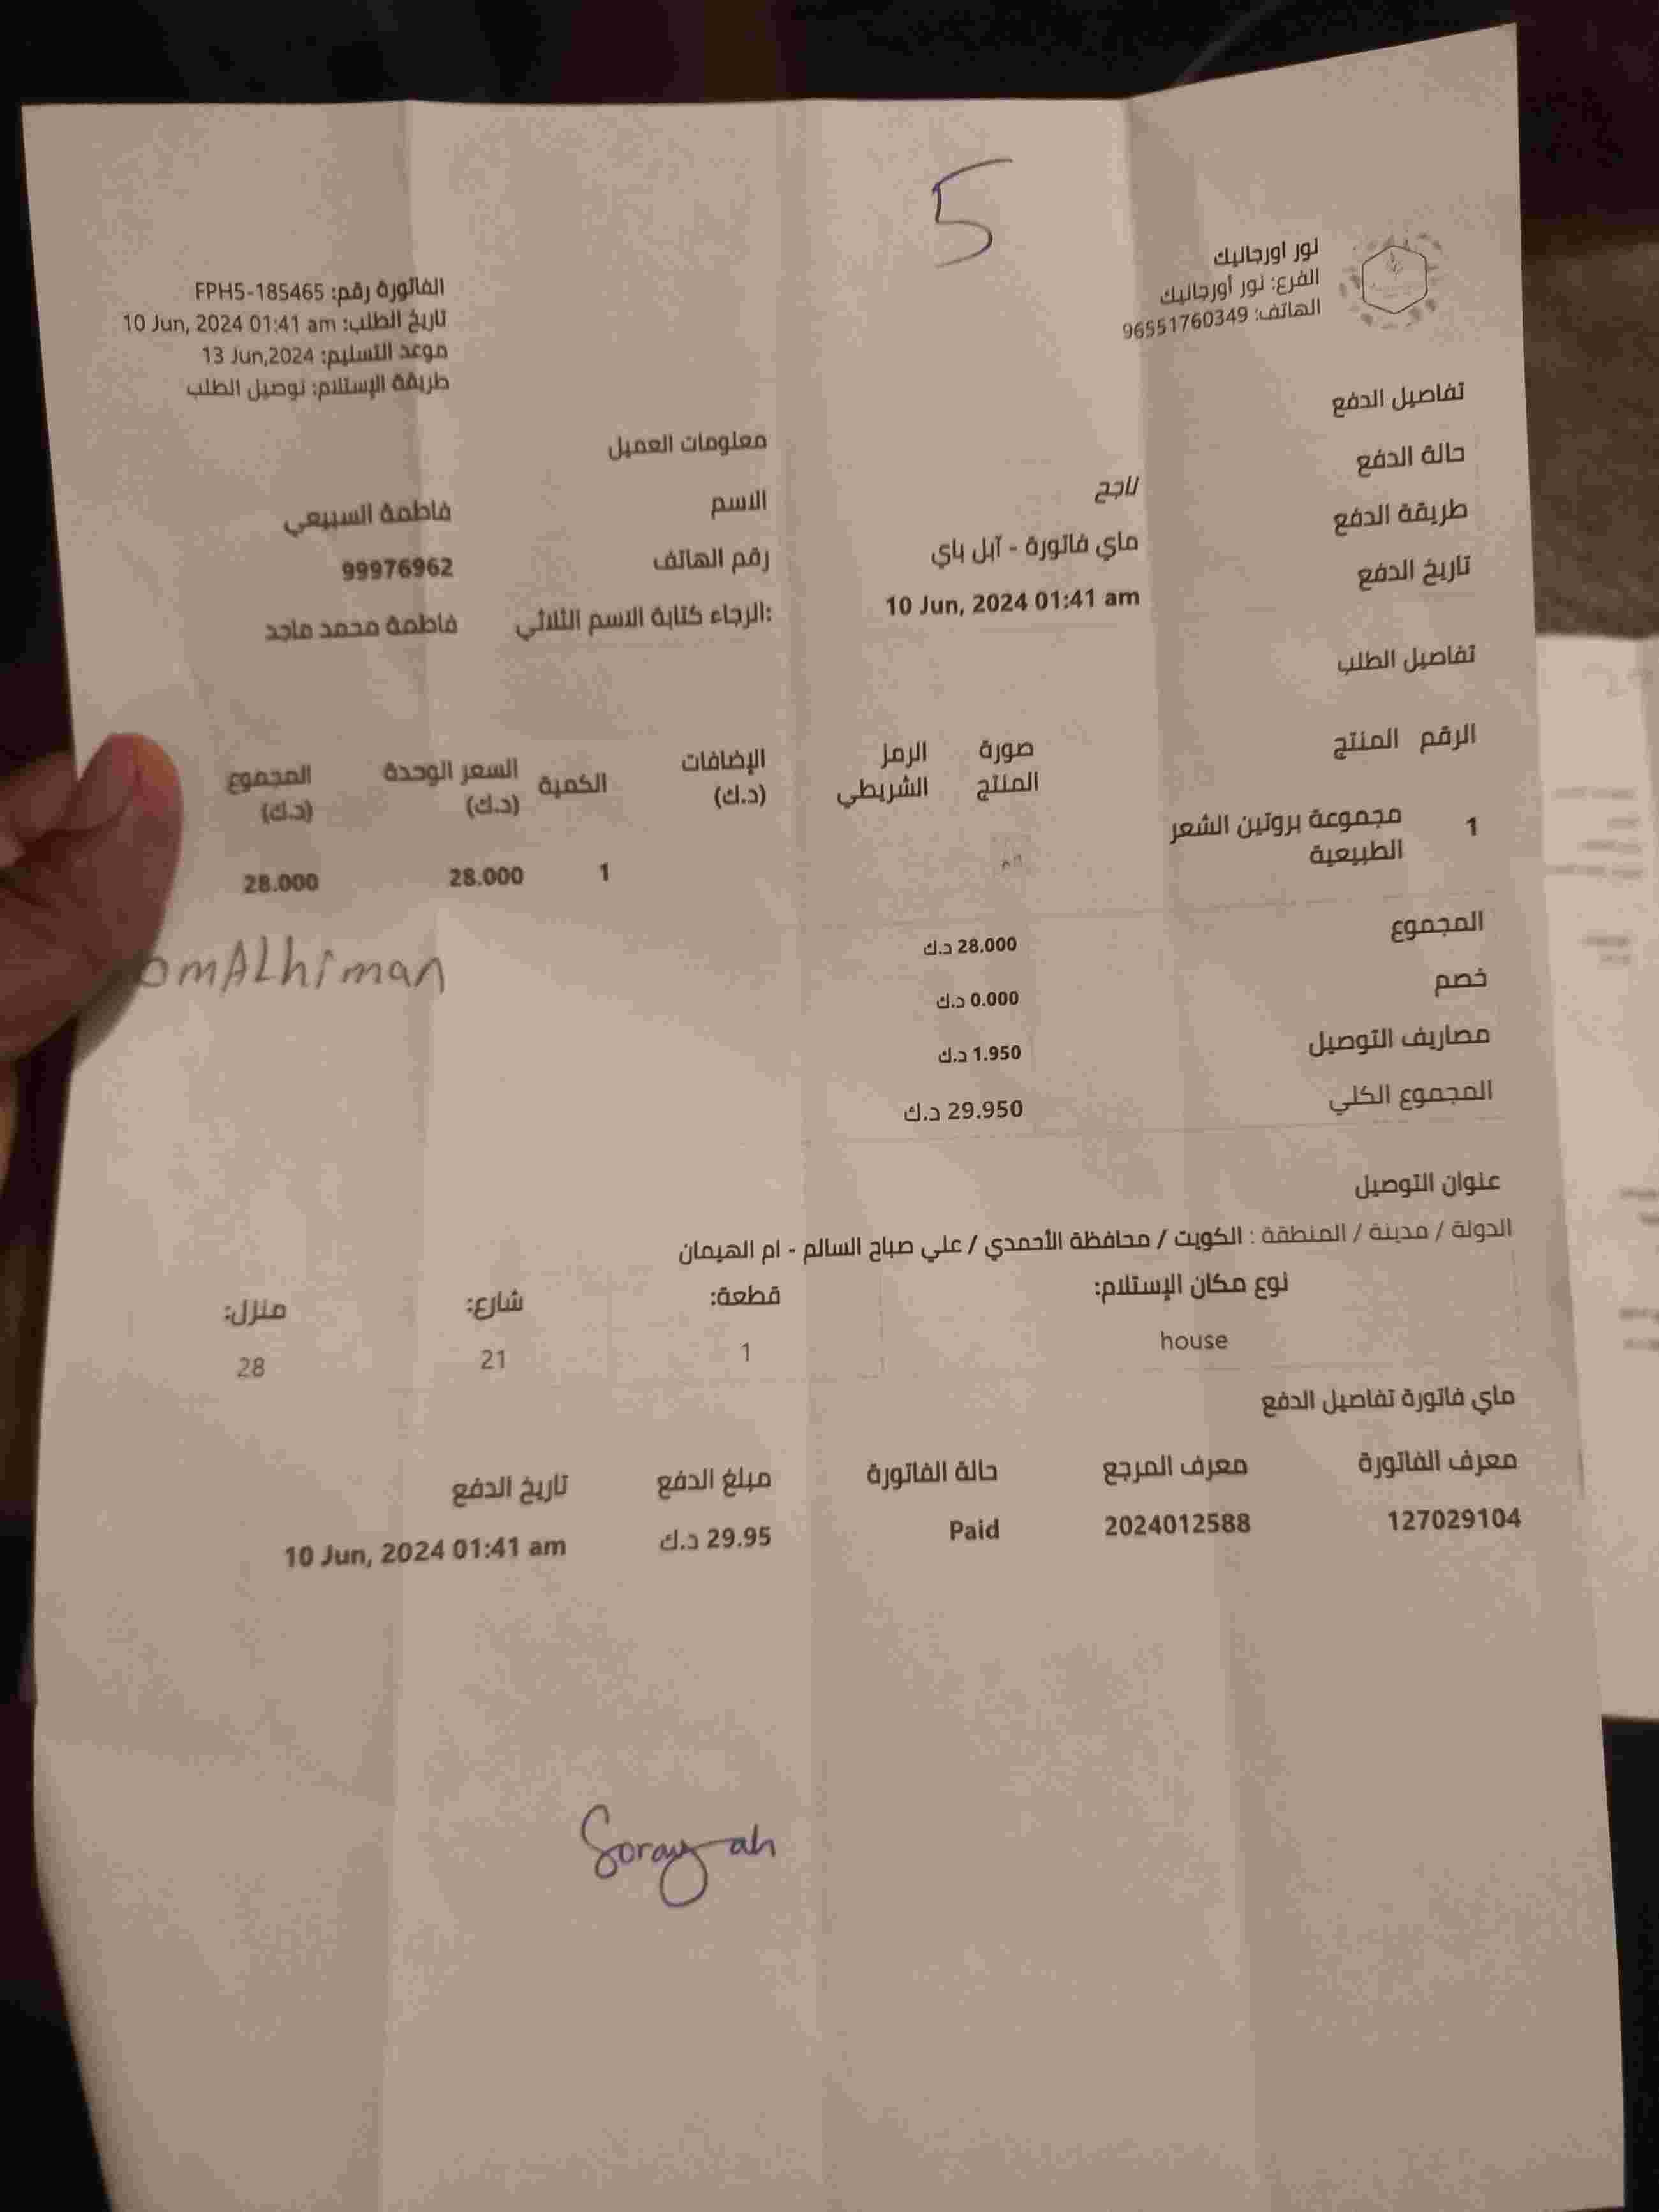 5
نور اورجانيك
الفرع: نور أورجانيك
الهاتف: 96551760349
الفاتورة رقم: FPH5-185465
تاريخ الطلب: 10 Jun, 2024 01:41 am
موعد التسليم: 13 Jun,2024
طريقة الإستلام: توصيل الطلب
تفاصيل الدفع
حالة الدفع ناجح
طريقة الدفع ماي فاتورة - آبل باي
تاريخ الدفع 10 Jun, 2024 01:41 am
معلومات العميل
الاسم فاطمة السبيعي
رقم الهاتف 99976962
الرجاء كتابة الاسم الثلاثي: فاطمة محمد ماجد
تفاصيل الطلب
الرقم المنتج صورة المنتج الرمز الشريطي الإضافات (د.ك) الكمية السعر الوحدة (د.ك) المجموع (د.ك)
1 مجموعة بروتين الشعر الطبيعية 1 28.000 28.000
omAlhiman
المجموع 28.000 د.ك
خصم 0.000 د.ك
مصاريف التوصيل 1.950 د.ك
المجموع الكلي 29.950 د.ك
عنوان التوصيل
الدولة / مدينة / المنطقة : الكويت / محافظة الأحمدي / علي صباح السالم - ام الهيمان
نوع مكان الإستلام: قطعة: شارع: منزل:
house 1 21 28
ماي فاتورة تفاصيل الدفع
معرف الفاتورة معرف المرجع حالة الفاتورة مبلغ الدفع تاريخ الدفع
127029104 2024012588 Paid 29.95 د.ك 10 Jun, 2024 01:41 am
Sorayah